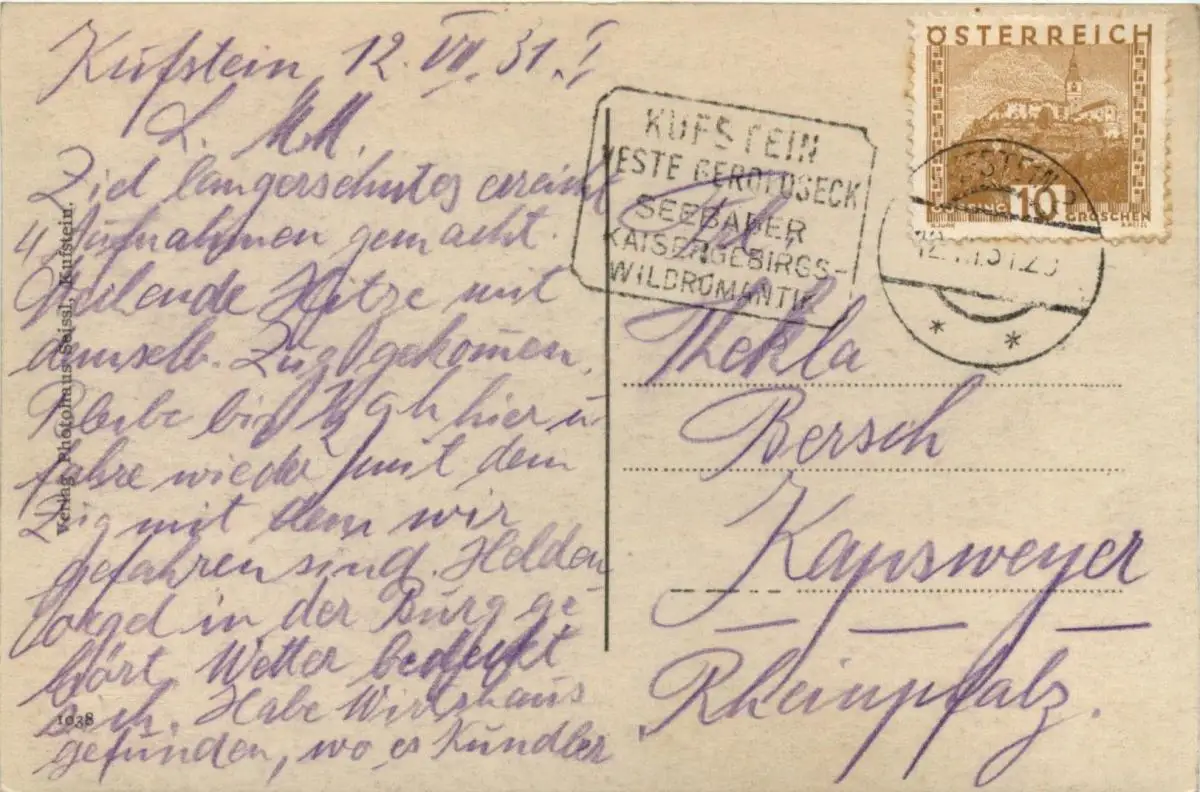 Kufstein, 12. VII. 31.
L. M.M.
Ziel langersehntes erreicht
4 Aufnahmen gemacht.
Hitze mit
demselb. Zug gekommen,
Bleibe bis ½ 9 h hier u.
fahre wieder mit dem
Zug mit dem wir
gefahren sind. Helden
orgel in der Burg ge-
hört. Wetter bedeckt
sich. Habe Wirtshaus
gefunden, wo es Kundler
Verlag Photohaus Seissl, Kufstein.
1038
KUFSTEIN
VESTE GEROLDSECK
SEEBÄDER
KAISERGEBIRGS-
WILDROMANTIK
ÖSTERREICH
10
GROSCHEN
Frl.
Thekla
Bersch
Kapsweyer
Rheinpfalz.